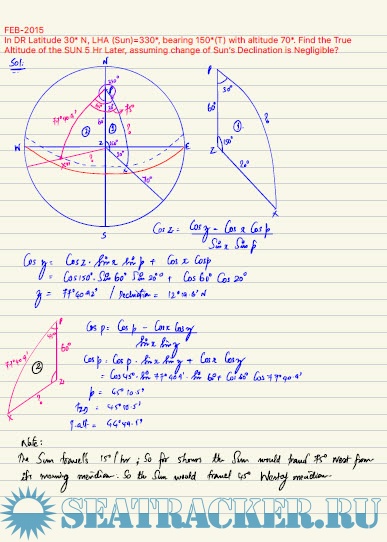 FEB-2015
In DR Latitude 30* N, LHA (Sun)=330*, bearing 150*(T) with altitude 70*. Find the True
Altitude of the SUN 5 Hr Later, assuming change of Sun's Declination is Negligible?
Sol:
N
W
E
S
P
Z
X
60°
30°
150°
20°
?
①
②
77°40.9'
75°
70°
Cos Z = Cos z - Cos x Cos p
Sin x Sin p
Cos z = Cos Z · Sin x Sin p + Cos x Cos p
= Cos 150° · Sin 60° Sin 20° + Cos 60° Cos 20°
z = 77°40.9' / Declination = 12°19.1' N
P
60°
Z
77°40.9'
②
?
X
Cos P = Cos p - Cos x Cos z
Sin x Sin z
Cos p = Cos P · Sin x Sin z + Cos x Cos z
= Cos 45° · Sin 77°40.9' · Sin 60 + Cos 60 Cos 77°40.9'
p = 45°10.5'
TZD = 45°10.5'
T.alt = 44°49.5'
Note:
The Sun travels 15°/hr ; So for 5 hours the Sun would travel 75° West from
its morning meridian. So the Sun would travel 45° West of meridian.
SEATRACKER.RU